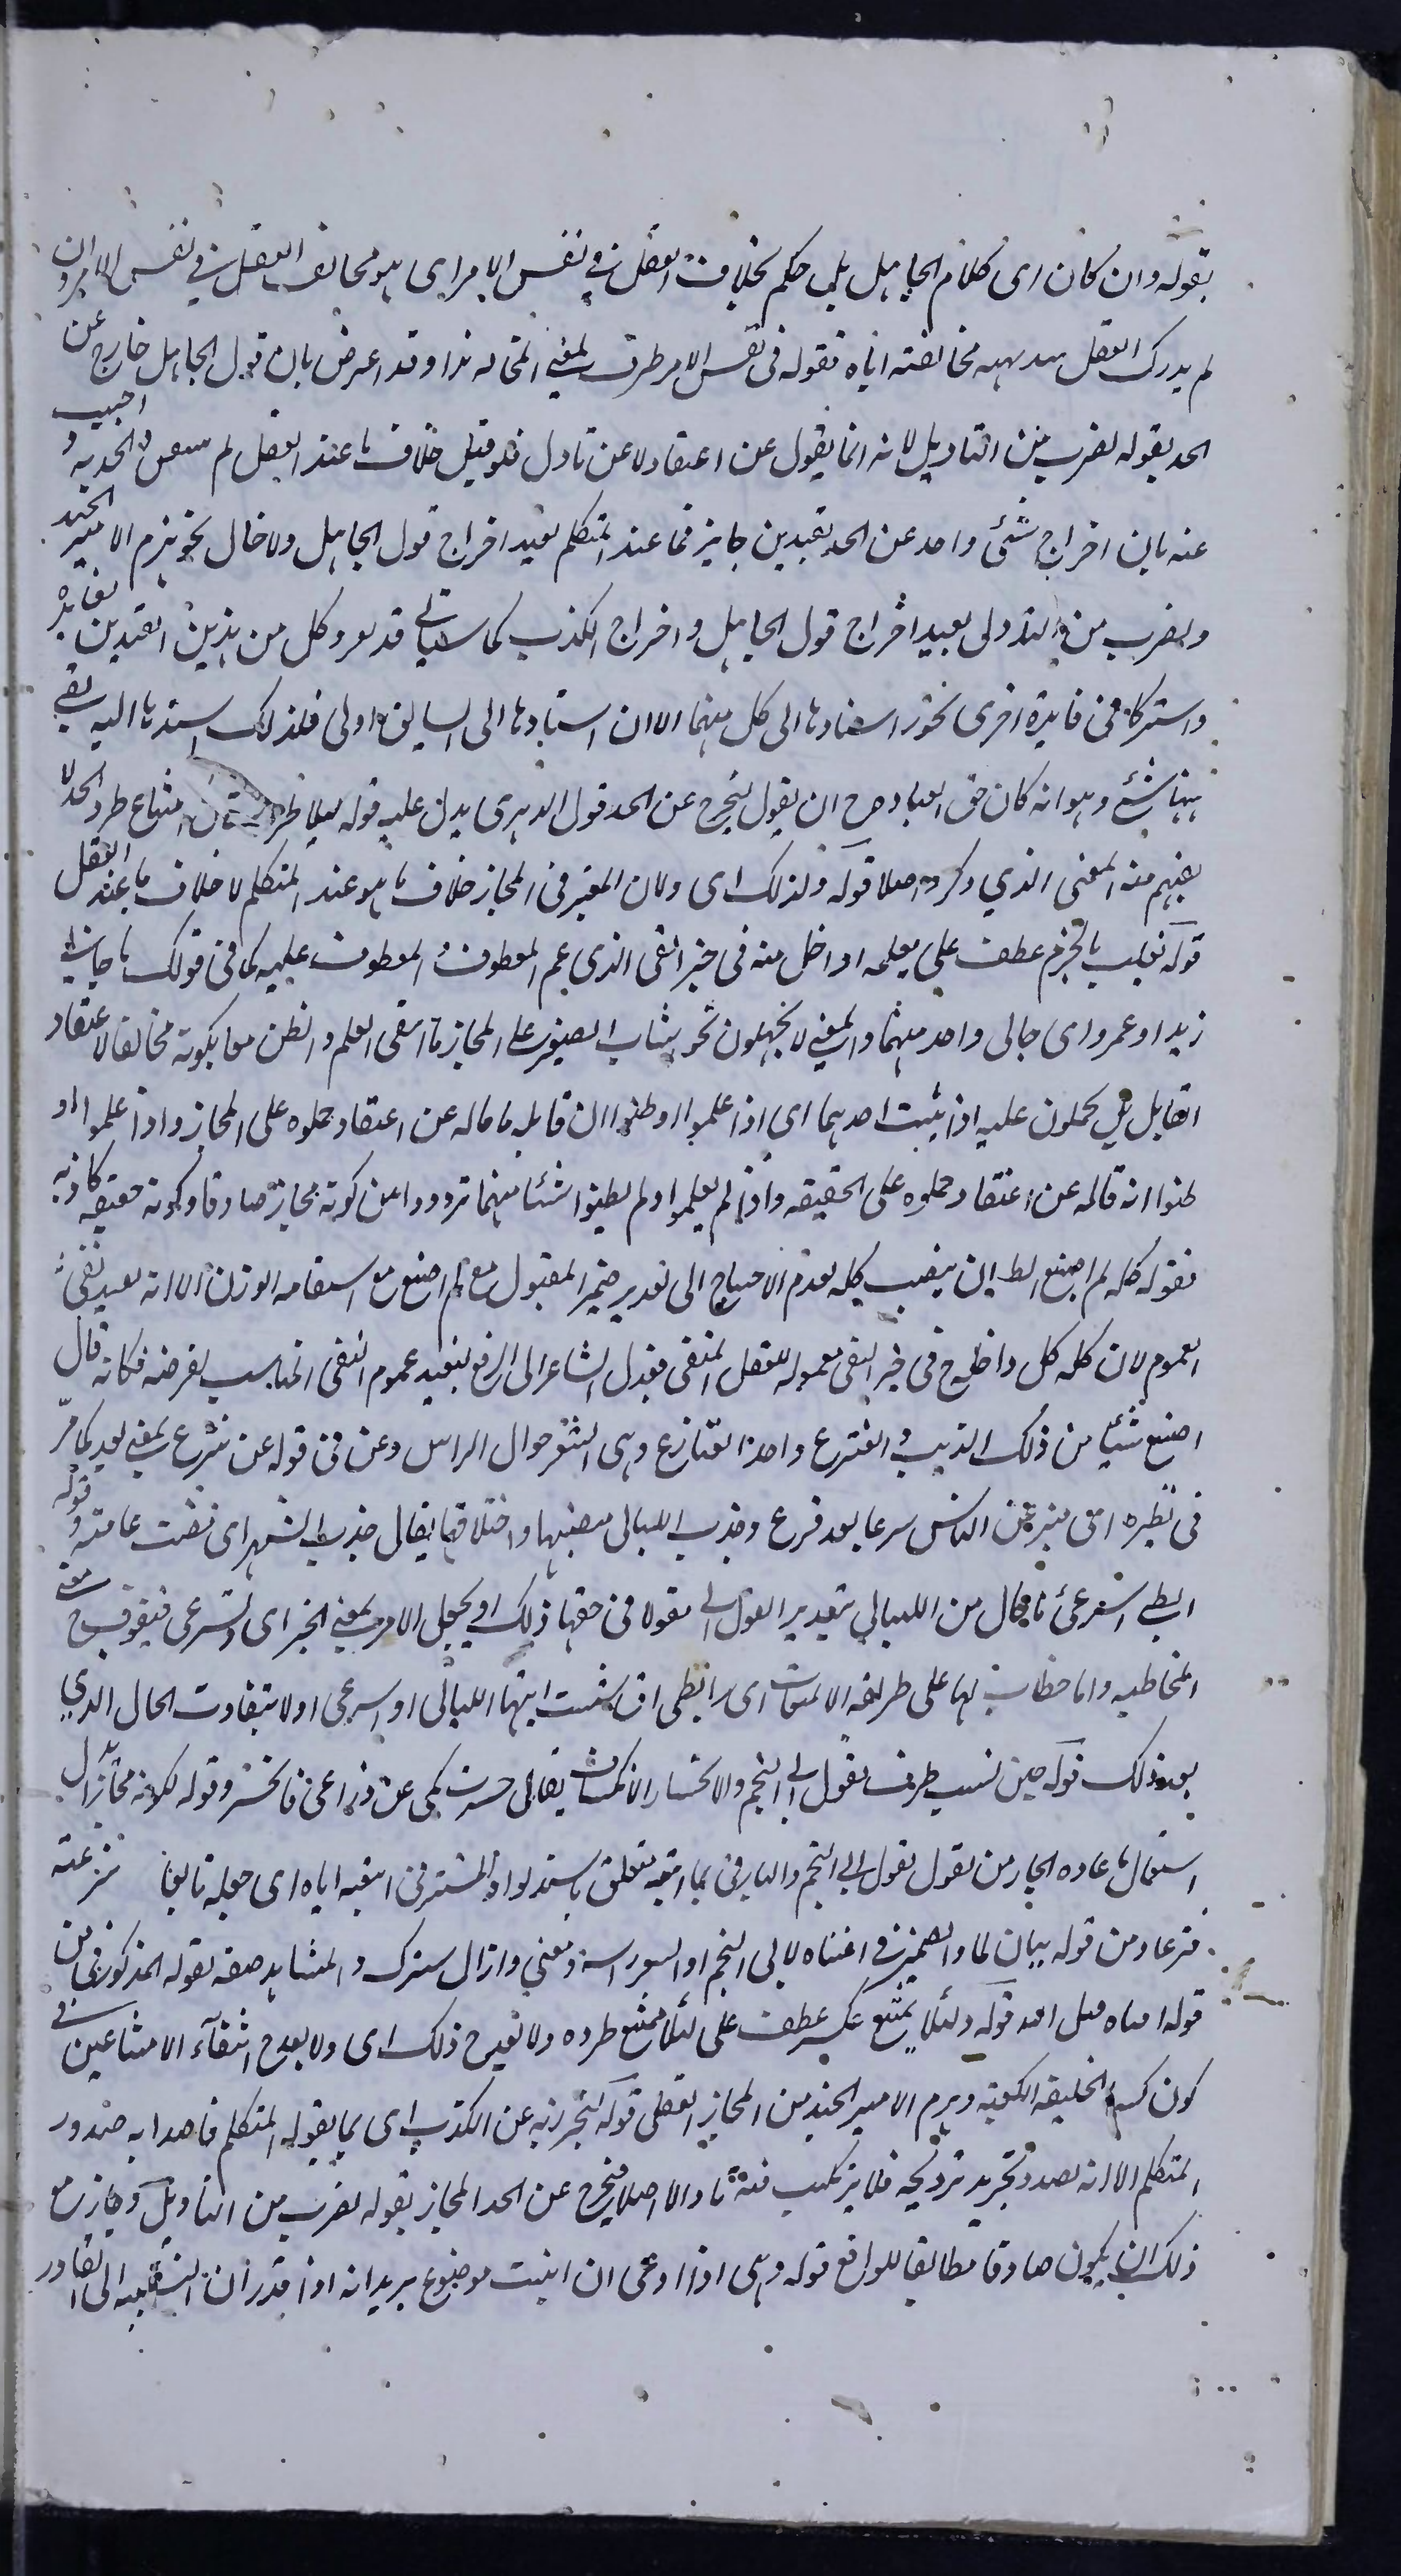 بقوله وان كان اى كلام الجاهل بل حكم بخلاف العقل فى نفس الامر اى هو مخالف العقل فى نفس الامر وان
لم يدرك العقل مخالفته اياه فقوله فى نفس الامر ظرف لمعنى المخالفة وقد اعترض بان قول الجاهل خارج عن
الحد بقوله لضرب من التاويل لانه انما يقول عن اعتقاد لا عن تاول فلو قيل خلاف ما عند العقل لم الحد به و اجيب
عنه بان اخراج شئ واحد عن الحد بقيدين جايز فما عند المتكلم يفيد اخراج قول الجاهل ولا خال نحو هزم الامير الجند
وبضرب من التاول يفيد اخراج قول الجاهل واخراج الكذب كما سياتى قد كل من هذين القيدين بفايدة
واشتركا فى فايدة اخرى نحو اسنادها الى كل منهما الا ان اسنادها الى السابق اولى فلذلك اسندها اليه بقى
ههنا شئ وهو انه كان حق العبارة ح ان يقول ليخرج عن الحد قول الدهرى يدل عليه قوله امتناع طرد الحد لا
يفهم منه المعنى الذي ذكره اصلا قوله ولذلك اى ولان المعتبر فى المجاز خلاف ما هو عند المتكلم لا خلاف ما عند العقل
قوله بالجزم عطف على يعلم او داخل منه فى حيز النفى الذى عم المعطوف و المعطوف عليه كما فى قولك ما جانى
زيد او عمرو اى جانى واحد منهما والمعنى لا يحملون نحو اشاب الصغير على المجاز ما انتفى العلم والظن معا بكونه مخالفا لاعتقاد
القايل بل يحملون عليه اذا ثبت احدهما اى اذا علموا او ظنوا ان قايله ما قاله عن اعتقاد حملوه على المجاز واذا علموا او
ظنوا انه قاله عن اعتقاد حملوه على الحقيقه واذا لم يعلموا ولم يظنوا شئا منهما ترددوا بين كونه مجازا صادقا وكونه حقيقه كاذبه
فقوله كله لم اصنع الظ ان ينصب كله لعدم الاحتياج الى تقدير ضمير المفعول مع لم اصنع مع استقامه الوزن الا انه يفيد نفى
العموم لان كلمه كل داخله ح فى حيز النفى معموله للفعل المنفى فعدل الشاعر الى الرفع ليفيد عموم النفى المناسب لغرضه فكانه قال
اصنع شيئا من ذلك الذنب و القنزع واحد القنازع وهى الشعر حوال الراس وعن فى قوله عن قنزع بمعنى بعد كما مر
فى نظيره اى ميز عن الراس سرعا بعد قزع وجذب الليالى مضيها واختلافها يقال جذب الشهر اى مضت عامته و قوله
ابطى او اسرعى حال من الليالي بتقدير القول اى مقولا فى حقها ذلك او يجعل الامر بمعنى الخبر اى وتسرعى فيفوت ح معنى
المخاطبه واما خطاب لها على طريقه الالتفات اى ابطى ان شئت ايتها الليالى او اسرعى اولا يتفاوت الحال الذي
بعد ذلك قوله حين نسب ظرف لقول ابى النجم والانحسار الانكشاف يقال حسرت كمى عن ذراعى فانحسر وقوله لكونه مجازا ل
استعمال باعادة الجار من لقول ابى النجم والبا فى بما اتبعه متعلق باستدلوا والمستتر فى اتبعه اياه اى جعله تابعا قنزعته
من قوله بيان لما والضمير فى افناه لابى النجم او لشعر راسه ومعنى وارال مشترك و المشابه صفه لقوله المذكورين
قوله افناه قيل الله قوله ولئلا يمتنع عكسه عطف على لئلا يمتنع طرده ولا يقدح ذلك اى ولا يقدح انتفآء الامتناعين فى
كون كسا الخليفه الكعبه وهزم الامير الجند من المجاز العقلى قوله ليحترز به عن الكذب اى بما يقوله المتكلم قاصدا به صدور
المتكلم الا انه بصدد ترويجه فلا يرتكب فيه تاولا اصلا فيخرج عن الحد المجاز بقوله لضرب من التاويل وجاز مع
ذلك ان يكون صادقا مطابقا للواقع قوله وهى اذا ادعى ان انبت موضوع يريد انه اذا قدر ان النسبه الى القادر